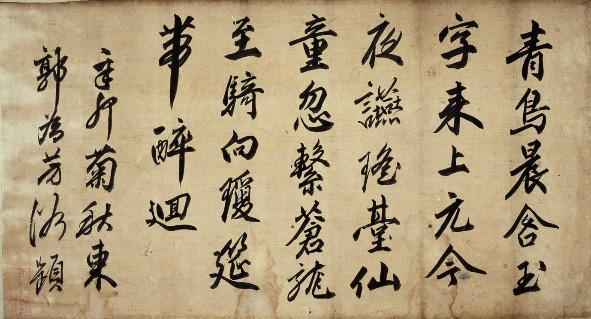 青鳥晨含玉
字来上元今
夜讌瑤臺仙
童忽繫蒼龍
至騎向瓊筵
醉迴
辛卯菊秋東
郭為芳